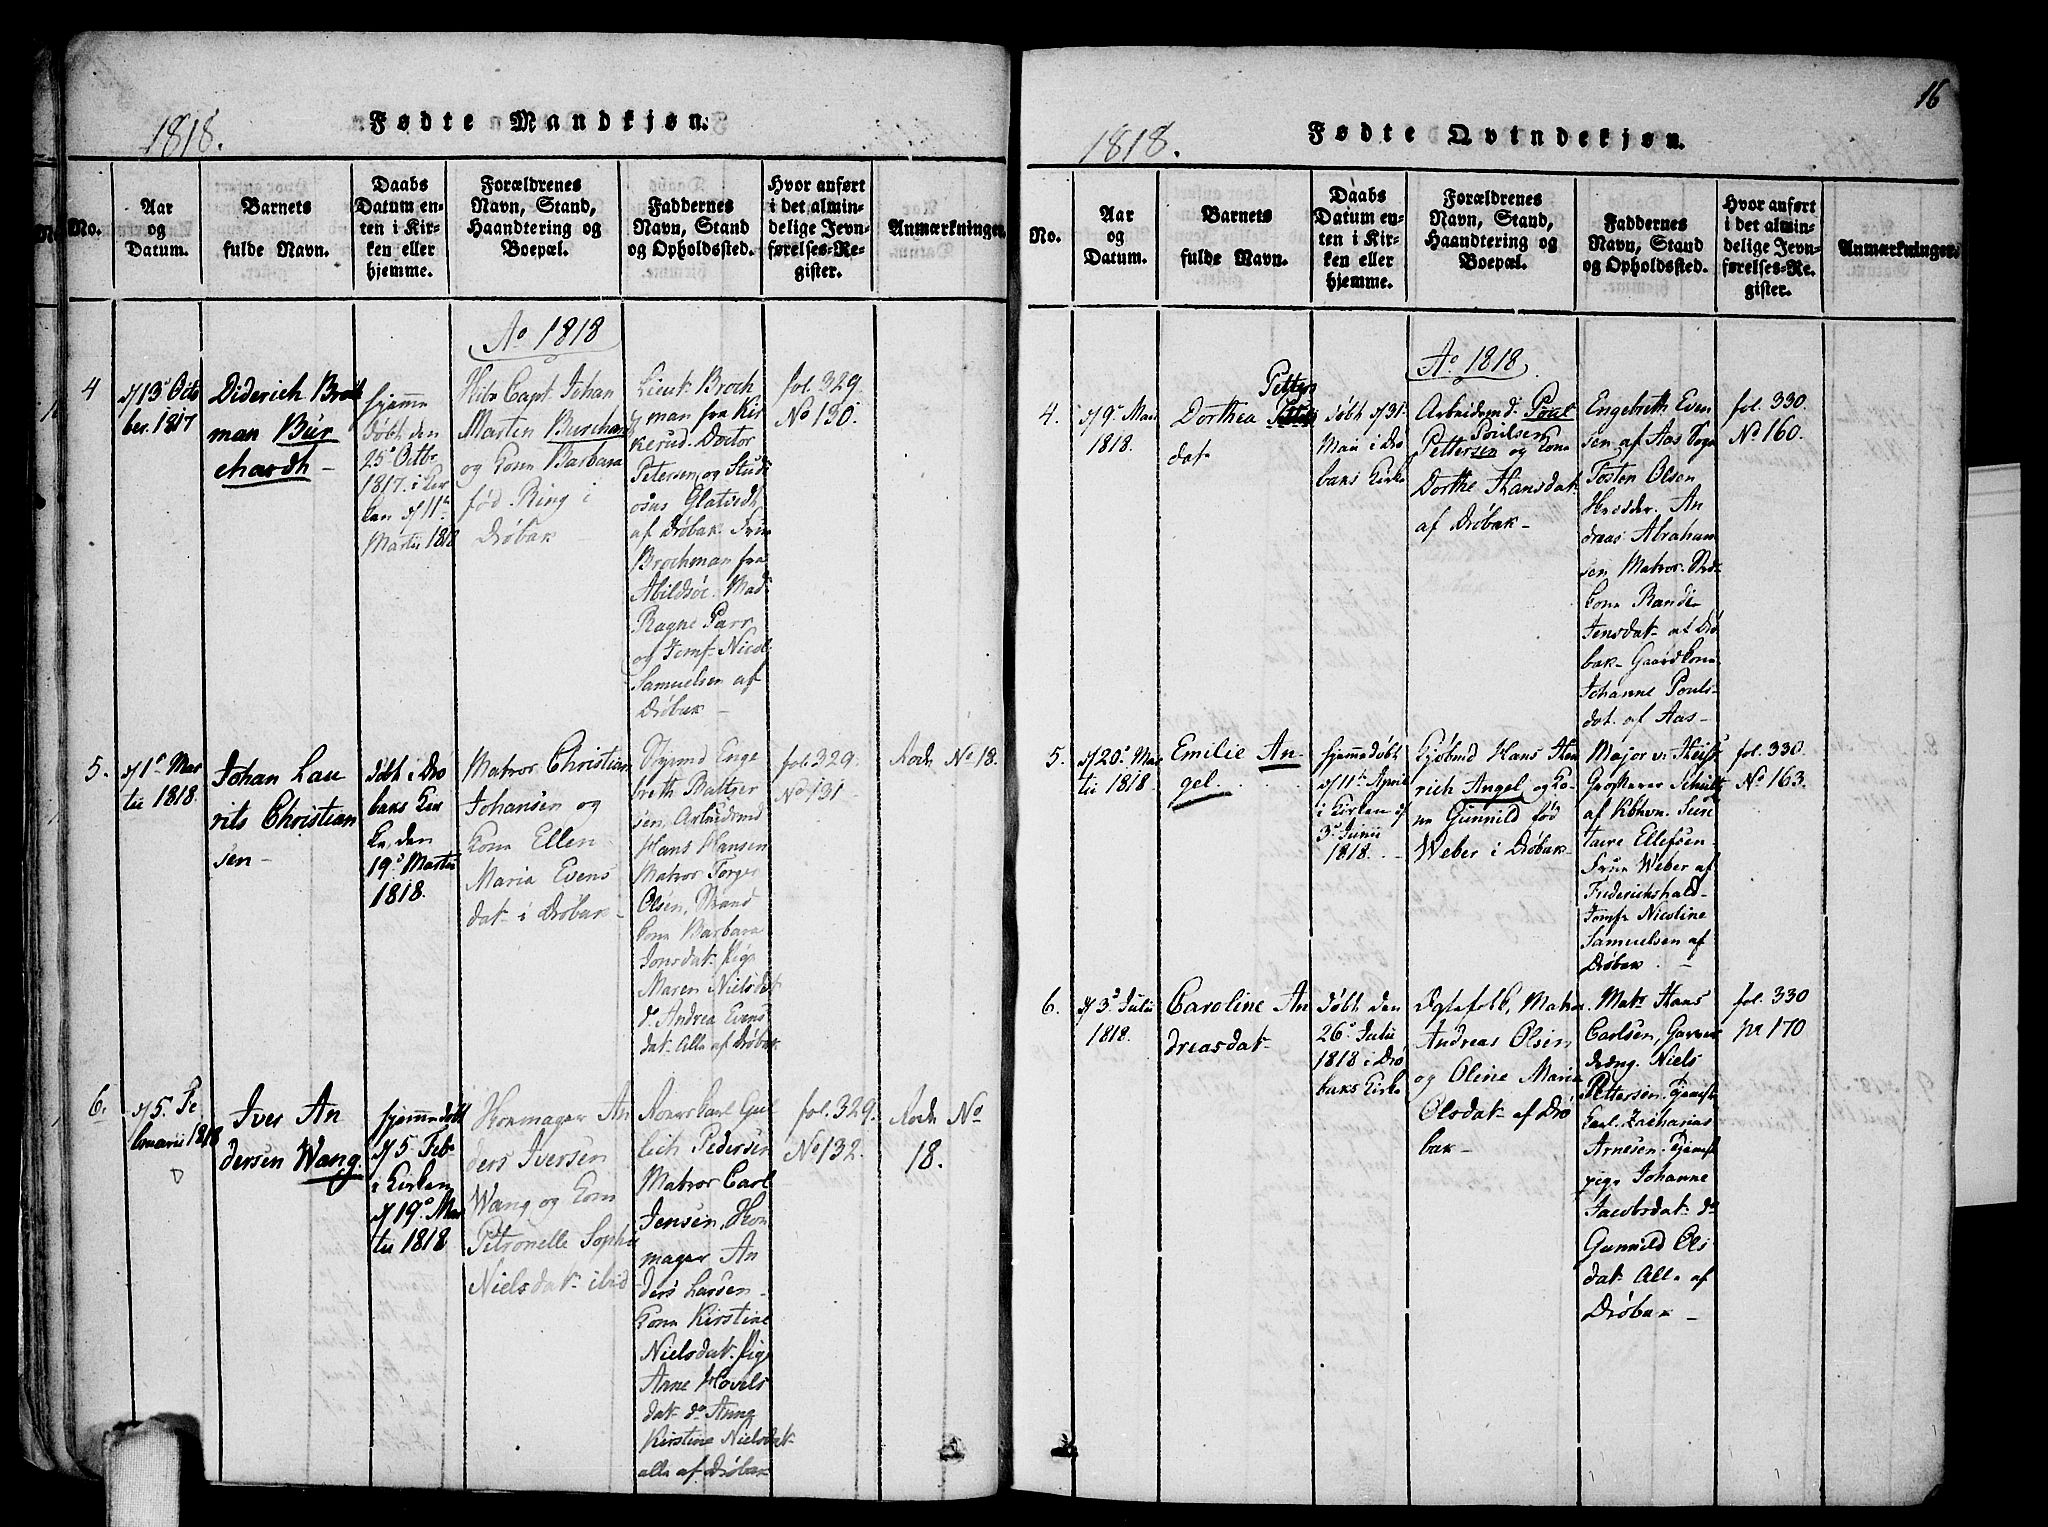 1818.
Fødte Mandkjøn.
No.
Aar
og
Datum.
Barnets
fulde Navn.
Daabs
Datum en-
ten i Kir-
ken eller
hjemme.
Forældrenes
Navn, Stand,
Haandtering og
Boepæl.
Faddernes
Navn, Stand
og Opholdssted.
Hvor anført
i det almin-
delige Jevn-
førelses-Re-
gister.
Anmærkninger.
Ao 1818
4
d/13de Octo
ber. 1817
Diderich Broch
man Bur
chardt
hjemme
døbt den
25de Octbr
1817. i Kir
ken d/11te
Martii 1818
Capt. Johan
Martin Burchard
og Kone Barbara
fød Ring i
Drøbak
Lieut. Broch
man fra Kir
kerud. Doctor
Petersen, og Stud
osus
af Drøbak. Frue
Brochman fra
Abildsøe. Mad.
Ragne Parr
og Jomf. Nicol.
Samuelsen af
Drøbak
fol. 329.
No 130.
5.
d/1te Mar
tii 1818.
Johan Lau
rits Christian
sen
døbt i Drø
baks Kir
ke, den
19de Martii
1818.
Matros Christian
Johansen og
Kone Ellen
Maria Evens
dat. i Drøbak
Enge
breth
sen, Arbeidsmd
Hans Hansen
Matros Torger
Olsen, Strand
kone Barbara
Jonsdat. Pige
Maren Nielsdat
do Andrea Evens
dat. Alle af Drøbak
fol. 329.
No 131
No 18.
6.
d/5. Fe
bruarii 1818
Iver An
dersen Wang.
hjemmedøbt
d/5 Feb.
i Kirken
d/19de Mar
tii 1818
Skomager An
ders Iversen
Wang og Kone
Petronelle Sophie
Nielsdat. ibid
Pedersen
Matros Carl
Jensen, Sko
mager An
ders Larsen
Kone Kirstine
Nielsdat. Pige
Arne
dat. do Anne
Kirstine Nielsdat.
alle af Drøbak
fol. 329.
No 132.
No
18.
16
1818.
Fødte Qvindekjøn.
No.
Aar
og
Datum.
Barnets
fulde Navn.
Daabs
Datum en-
ten i Kir-
ken eller
hjemme.
Forældrenes
Navn, Stand,
Haandtering og
Boepæl.
Faddernes
Navn, Stand
og Opholdssted.
Hvor anført
i det almin-
delige Jevn-
førelses-Re-
gister.
Anmærkninger.
Ao 1818
4.
d/9de Mai
1818.
Petters
Dorthea
dat.
døbt d/31.
Mai i Drø
baks Kirke
Arbeidsmd. Poul
Poulsen
Pettersen og Kone
Dorthe Hansdat.
af Drøbak
Engebreth Even
sen af Aas Sogn
Tosten Olsen
An
dreas Abraham
sen Matros.
kone Randi
Jensdat. af Drø
bak. Gaardkone
Johanne Pouls
dat. af Aas
fol. 330.
No 160.
5.
d/20de Mar
tii 1818.
Emilie An
gel.
hjemmedøbt
d/11te April
i Kirken d/
3de Junii
1818.
Kjøbmd Hans Hen
rich Angel og Ko
ne Gunnild fød
Weber i Drøbak
Major v.
Grosserer Schultz
af Kbhvn. Secre
taire Ellefsen
Frue Weber af
Frederikshald
Jomfr. Nicoline
Samuelsen af
Drøbak
fol. 330.
No 163.
6.
d/3de Julii
1818.
Caroline An
dreasdat.
døbt den
26de Julii
1818 i Drø
baks Kirke
Ægtefolk, Matros
Andreas Olsen
og Oline Maria
Olsdat. af Drø
bak
Matr. Hans
Carlsen, Garver
dreng. Niels
Pettersen. Tjeneste
Karl. Zacharias
Arnesen. Tjenest
pige Johanne
Jacobsdat. do
Gunnild Ols
dat. Alle af
Drøbak
fol. 330
No 170.